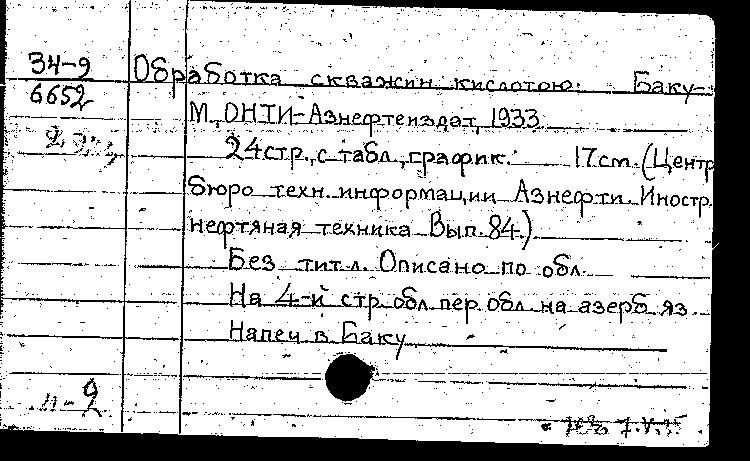 34-9
6652
Обработка скважин кислотою. Баку-
М., ОНТИ-Азнефтеиздат, 1933.
24 стр., с табл., график. 17 см. (Центр.
бюро техн. информации Азнефти. Иностр.
нефтяная техника Вып. 84.)
Без тит. л. Описано по обл.
На 4-й стр. обл. пер. обл. на азерб. яз.
Напеч. в Баку